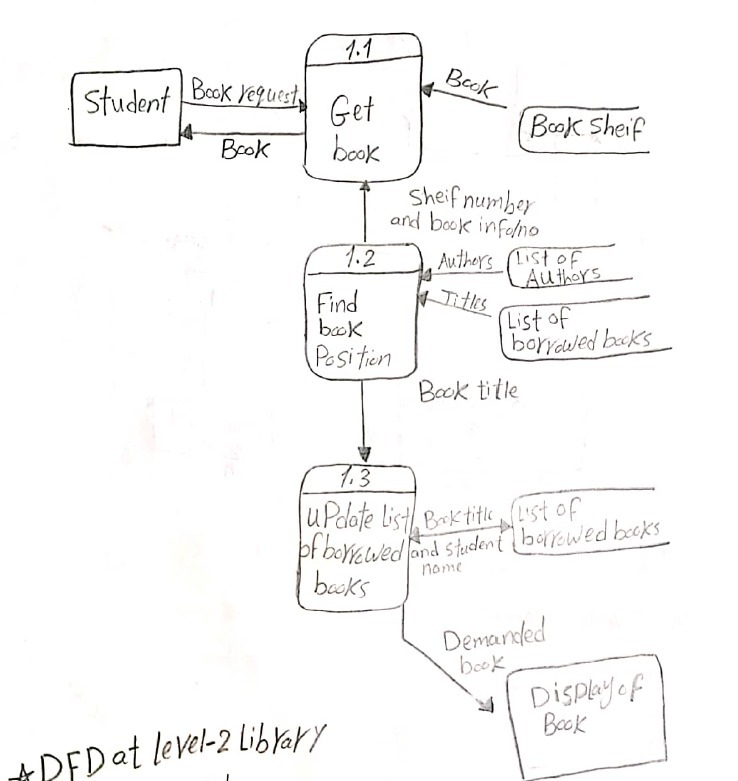 1.1
Student
Book request
Get
book
Book
Book
Book Sheif
Sheif number
and book info/no
1.2
Find
book
Position
Authors
List of
Authors
Titles
List of
borrowed books
Book title
1.3
uPdate list
of borrowed
books
Book title
and student
name
List of
borrowed books
Demanded
book
Display of
Book
*DFD at level-2 Library